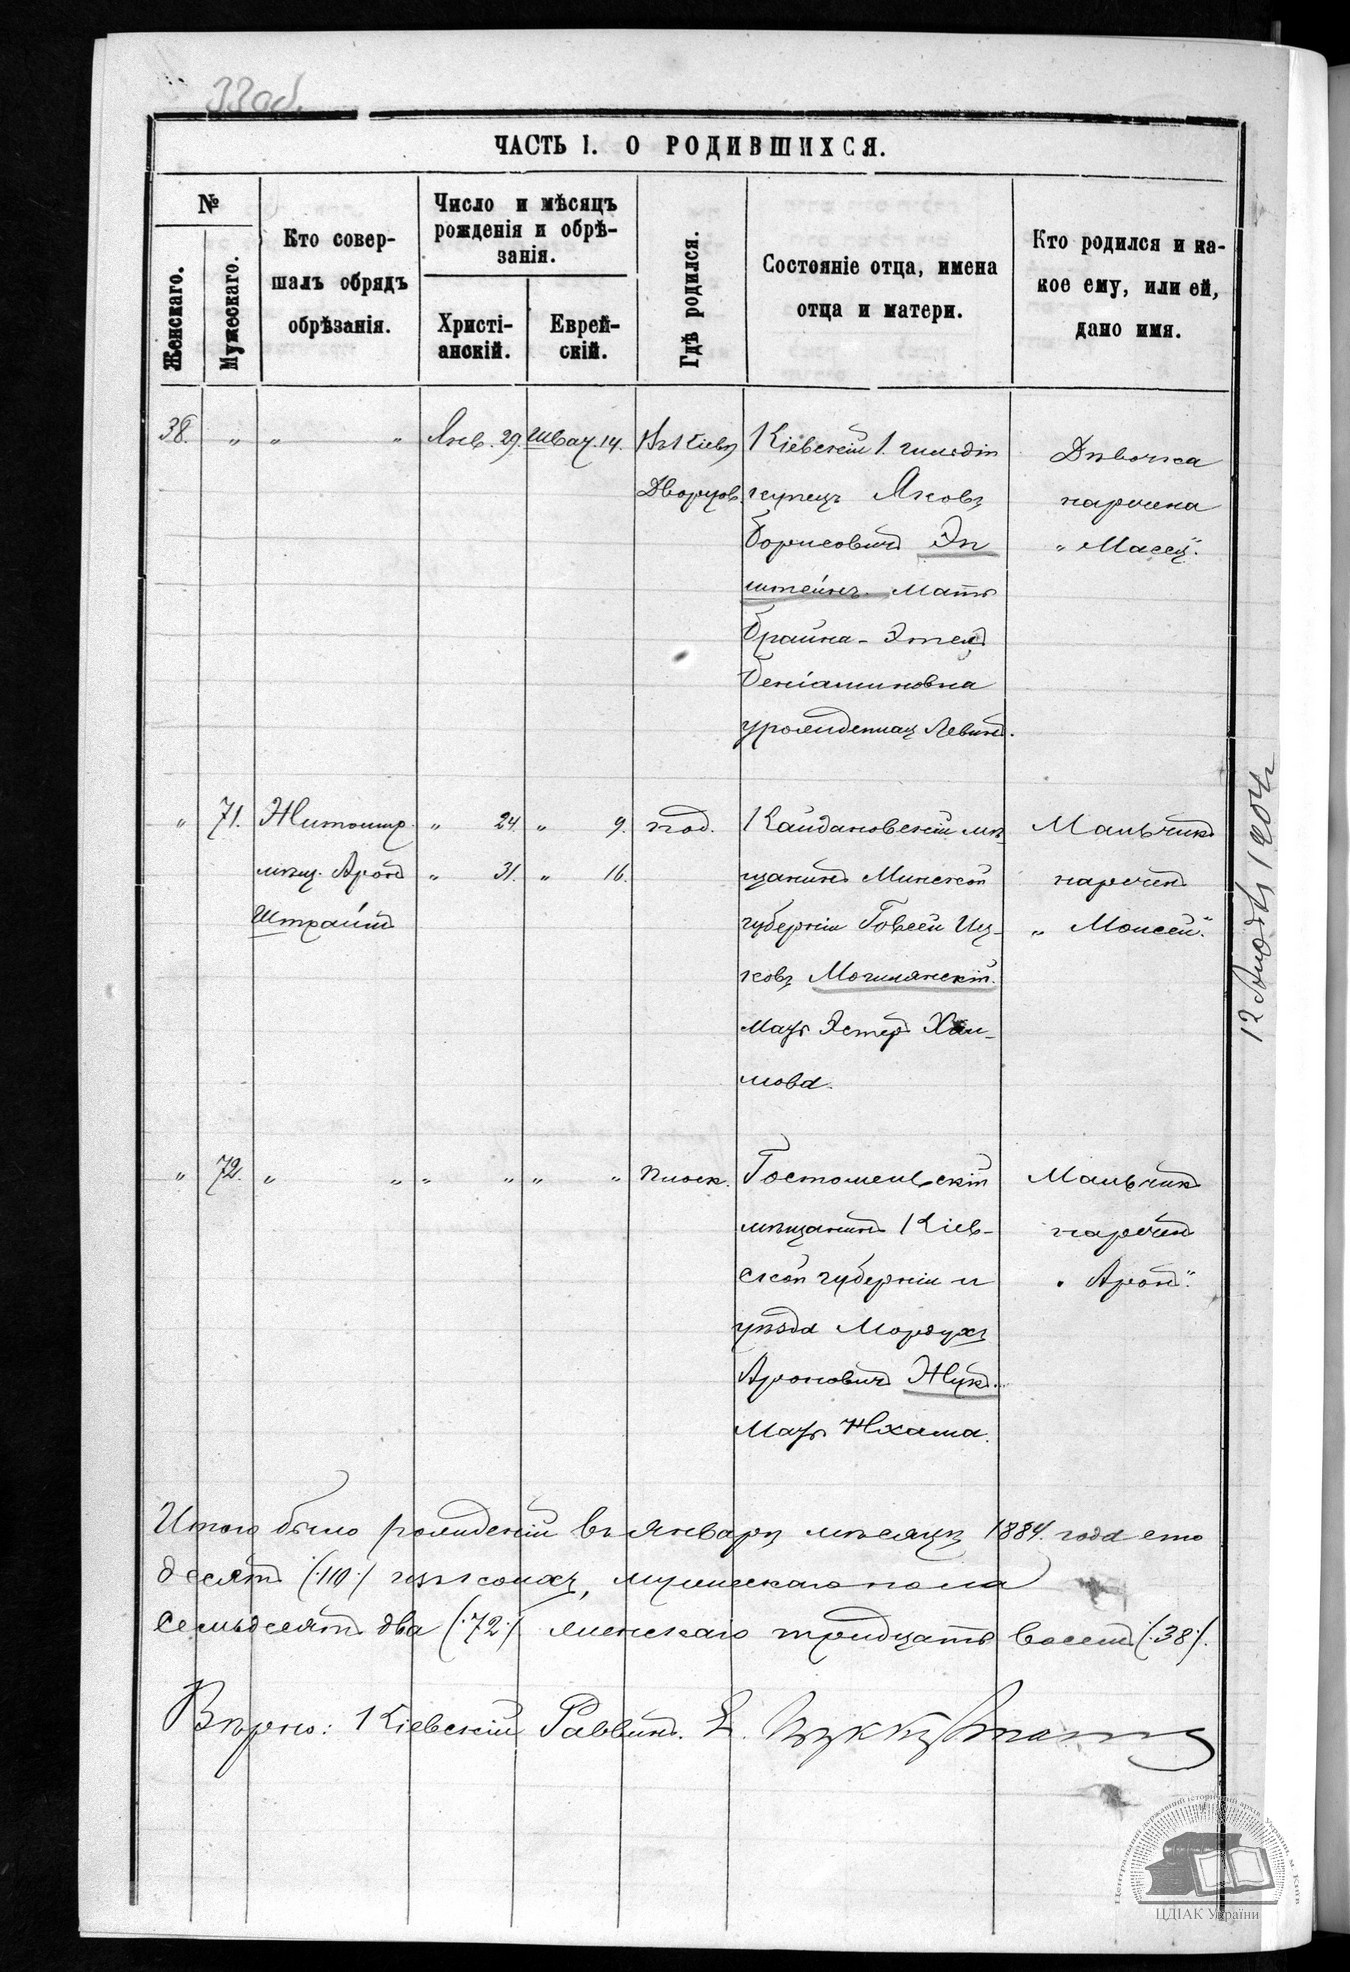 33 об.
ЧАСТЬ I. О РОДИВШИХСЯ.
№
Женскаго.
Мужескаго.
Кто совер-
шалъ обрядъ
обрѣзанія.
Число и мѣсяцъ
рожденія и обрѣ-
занія.
Христі-
анскій.
Еврей-
скій.
Гдѣ родился.
Состояніе отца, имена
отца и матери.
Кто родился и ка-
кое ему, или ей,
дано имя.
38. „ „ „ Янв. 29. Шват. 14. Въ Кіевѣ
Дворцов.
Кіевскій 1. гильдіи
купецъ Яковъ
Борисовичъ Эп
штейнъ. Мать
Брайна-Этель
Беніаминовна
урожденная Левинъ.
Дѣвочка
наречена
„
„ 71. Житомир.
мѣщ. Аронъ
Штрайтъ
„ 24. „ 9.
„ 31. „ 16.
под.
Кайдановскій мѣ-
щанинъ Минской
губерніи Говсей Иц-
ковъ Могилянскій.
Мать Эстеръ Хаи-
мова.
Мальчикъ
нареченъ
„Моисей“.
„ 72. „ „ „ „ „ „ плоск.
Гостомельскій
мѣщанинъ Кіев-
ской губерніи и
уѣзда Мордухъ
Ароновичъ Жукъ.
Мать Нхама.
Мальчикъ
нареченъ
„Аронъ“.
Итого было рожденій въ январѣ мѣсяцѣ 1884. года сто
десять (:110:) изъ коихъ, мужескаго пола
семьдесятъ два (:72:) женскаго тридцать восемь (:38:).
Вѣрно: Кіевскій Раввинъ. Е. Цуккерманъ
1904 г
ЦДІАК України